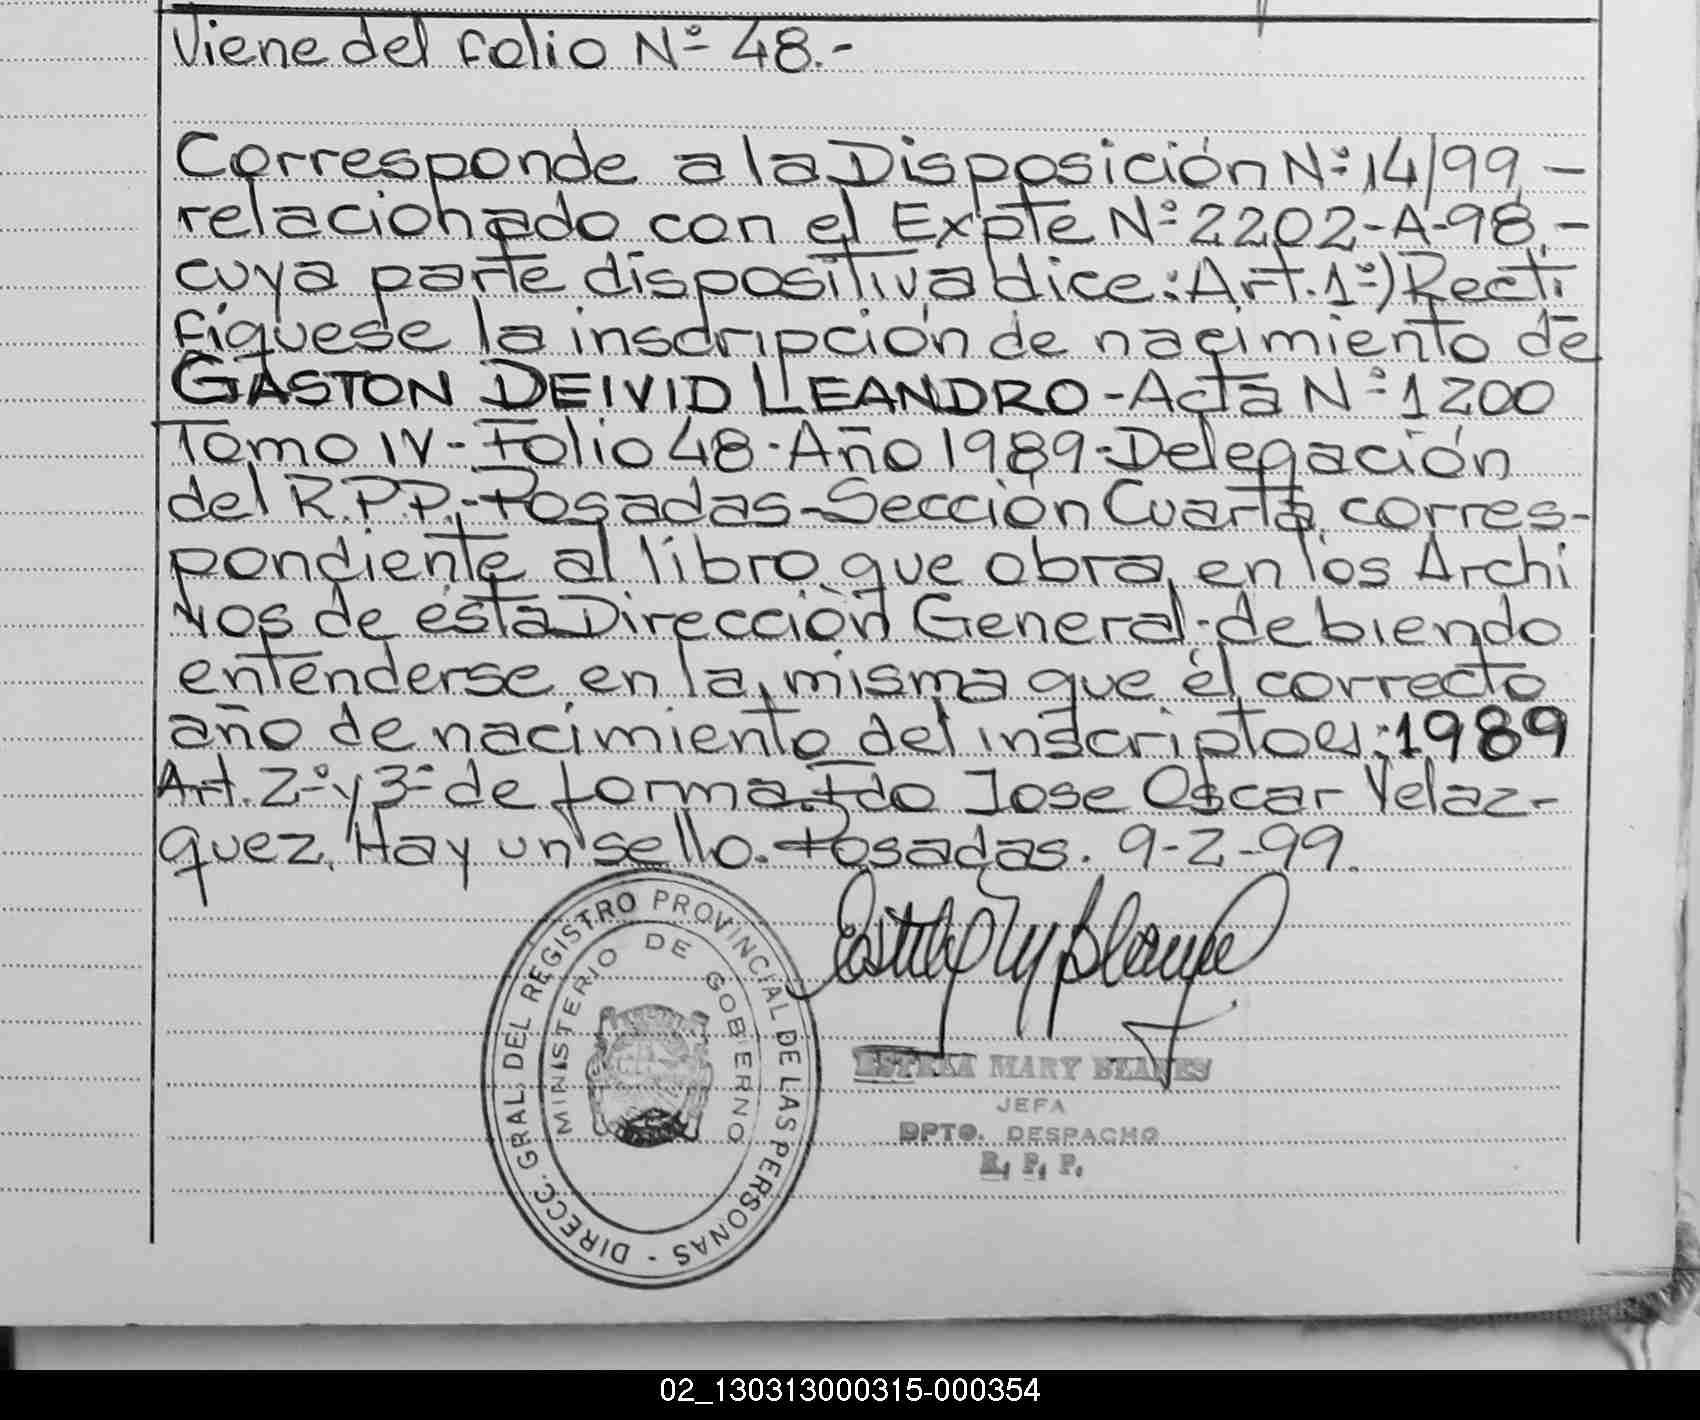 Viene del folio Nº 48.-
Corresponde a la Disposición Nº 14/99.-
relacionado con el Expte Nº 2202-A-98.-
cuya parte dispositiva dice: Art. 1º) Recti
fíquese la inscripción de nacimiento de
GASTON DEIVID LEANDRO - Acta Nº 1200
Tomo IV - Folio 48 - Año 1989 - Delegación
del R.P.P. - Posadas - Sección Cuarta, corres-
pondiente al libro que obra en los Archi
vos de ésta Dirección General - debiendo
entenderse en la misma que el correcto
año de nacimiento del inscripto es: 1989
Art. 2º y 3º de forma. Fdo Jose Oscar Velaz-
quez. Hay un sello. Posadas. 9-2-99.
DIRECC. GRAL. DEL REGISTRO PROVINCIAL DE LAS PERSONAS -
MINISTERIO DE GOBIERNO
MARY
JEFA
DPTO. DESPACHO
R. P. P.
02_130313000315-000354